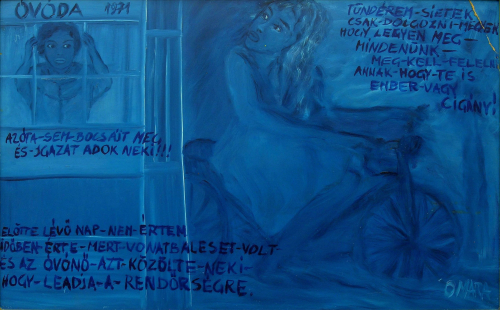 ÓVODA 1971
TÜNDÉREM-SIETEK
CSAK DOLGOZNI MEGYEK
HOGY LEGYEN MEG-
MINDENÜNK-
MEG-KELL-FELELN
ANNAK-HOGY-TE IS
EMBER-VAGY
CIGÁNY!
AZÓTA-SEM-BOCSÁJT MEG
ÉS-IGAZAT ADOK NEKI!!!
ELŐTTE LÉVŐ NAP-NEM-ÉRTEM
IDŐBEN-ÉRTE-MERT-VONATBALESET-VOLT-
ÉS AZ ÓVÓNŐ-AZT-KÖZÖLTE-NEKI-
HOGY-LEADJA-A-RENDŐRSÉGRE.